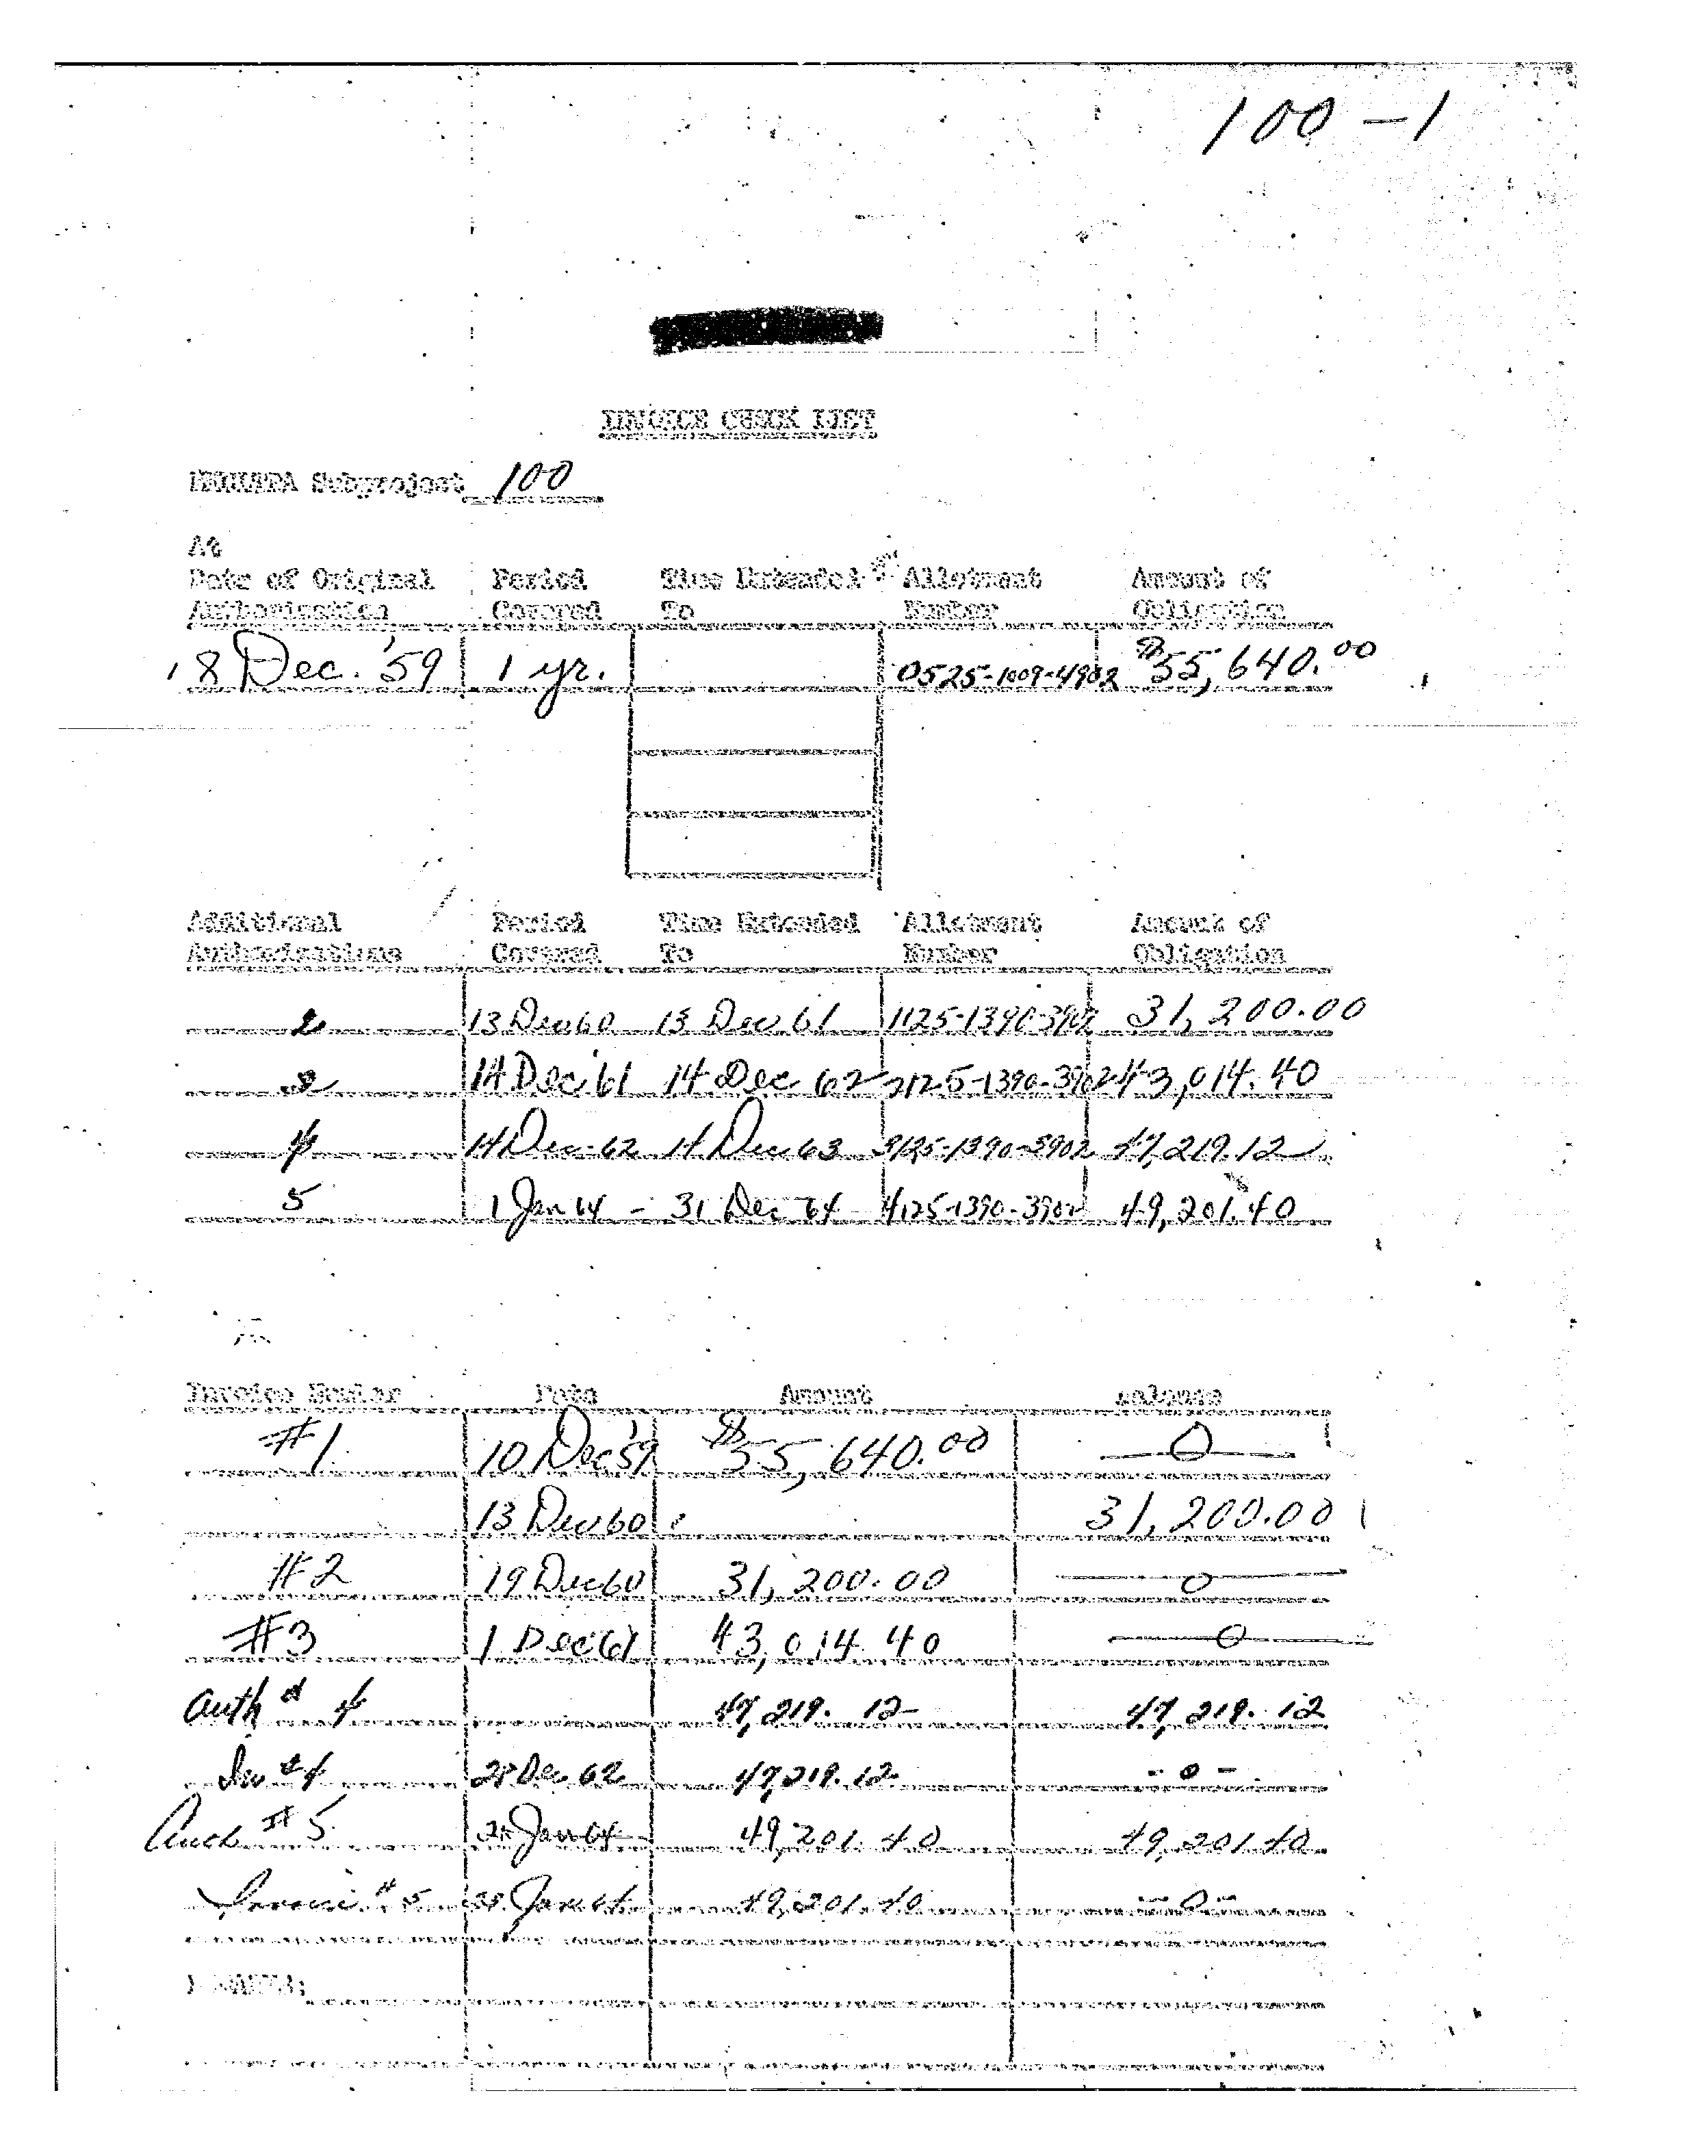 100-1
INVOICE CHECK LIST
MKULTRA Subproject 100
At
Date of Original Period Time Extended Allotment Amount of
Authorization Covered To Number Obligation
8 Dec. '59 1 yr. 0525-1009-4902 $55,640.00
Additional Period Time Extended Allotment Amount of
Authorizations Covered To Number Obligation
2 13 Dec 60 13 Dec 61 1125-1390-3902 31,200.00
3 14 Dec 61 14 Dec 62 2125-1390-3902 43,014.40
4 14 Dec 62 14 Dec 63 3125-1390-3902 47,219.12
5 1 Jan 64 - 31 Dec 64 4125-1390-3902 49,201.40
Invoice Number Date Amount Balance
#1 10 Dec '59 $55,640.00 0
13 Dec 60 31,200.00
#2 19 Dec 60 31,200.00 0
#3 1 Dec 61 43,014.40 0
Auth # 4 47,219.12 47,219.12
Inv # 4 Dec 62 47,219.12 - 0 -
Auth # 5 Jan 64 49,201.40 49,201.40
Invoice # 5 28 Jan 64 49,201.40 - 0 -
REMARKS: